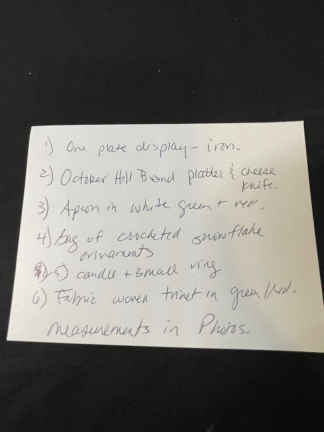 1) One plate display - iron.
2) October Hill Brand platter & cheese
knife.
3) Apron in white green + red.
4) Bag of crocheted snowflake
ornaments
5) candle + small ring
6) Fabric woven trivet in green/red.
measurements in Photos.